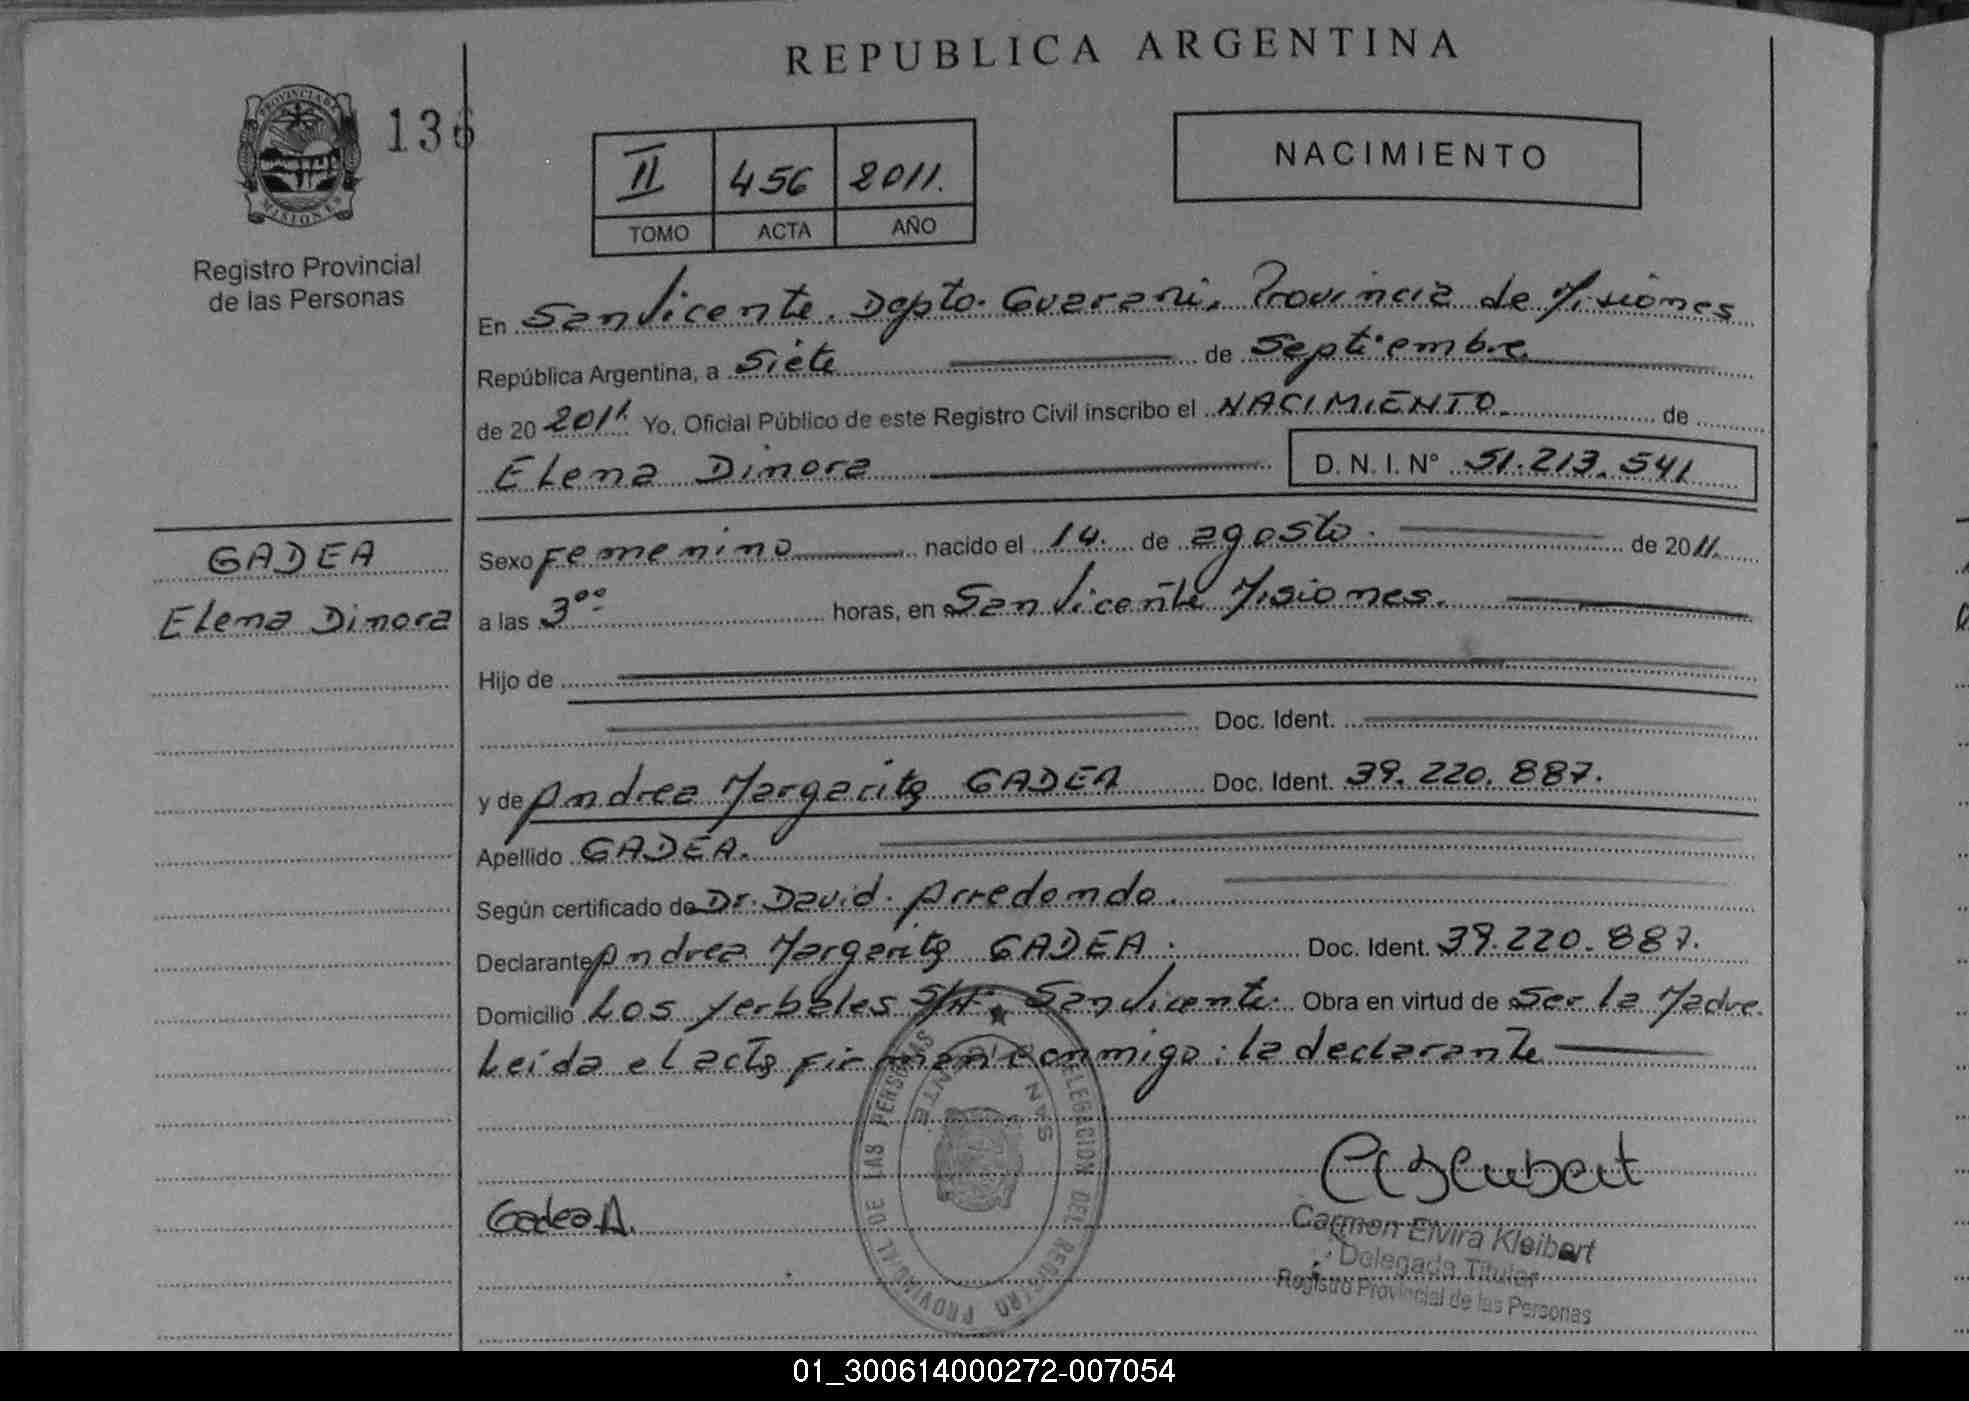 REPUBLICA ARGENTINA
PROVINCIA DE MISIONES
136
Registro Provincial
de las Personas
II 456 2011.
TOMO ACTA AÑO
NACIMIENTO
En San Vicente. Depto. Guarani, Provincia de Misiones
República Argentina, a Siete de Septiembre
de 20 2011. Yo, Oficial Público de este Registro Civil inscribo el NACIMIENTO. de
Elena Dinora D. N. I. N° 51.213.541
GADEA
Elena Dinora
Sexo Femenino nacido el 14. de agosto. de 2011.
a las 3°° horas, en San Vicente Misiones.
Hijo de
Doc. Ident.
y de Andrea Margarita GADEA Doc. Ident. 39.220.887.
Apellido GADEA.
Según certificado de Dr. David Arredondo.
Declarante Andrea Margarita GADEA. Doc. Ident. 39.220.887.
Domicilio Los Yerbales S/N° San Vicente. Obra en virtud de Ser la Madre.
Leída el acta firman conmigo: la declarante
DELEGACION DEL REGISTRO PROVINCIAL DE LAS PERSONAS
SAN VICENTE
Gadea A.
Carmen Elvira Kleibert
Delegada Titular
Registro Provincial de las Personas
01_300614000272-007054